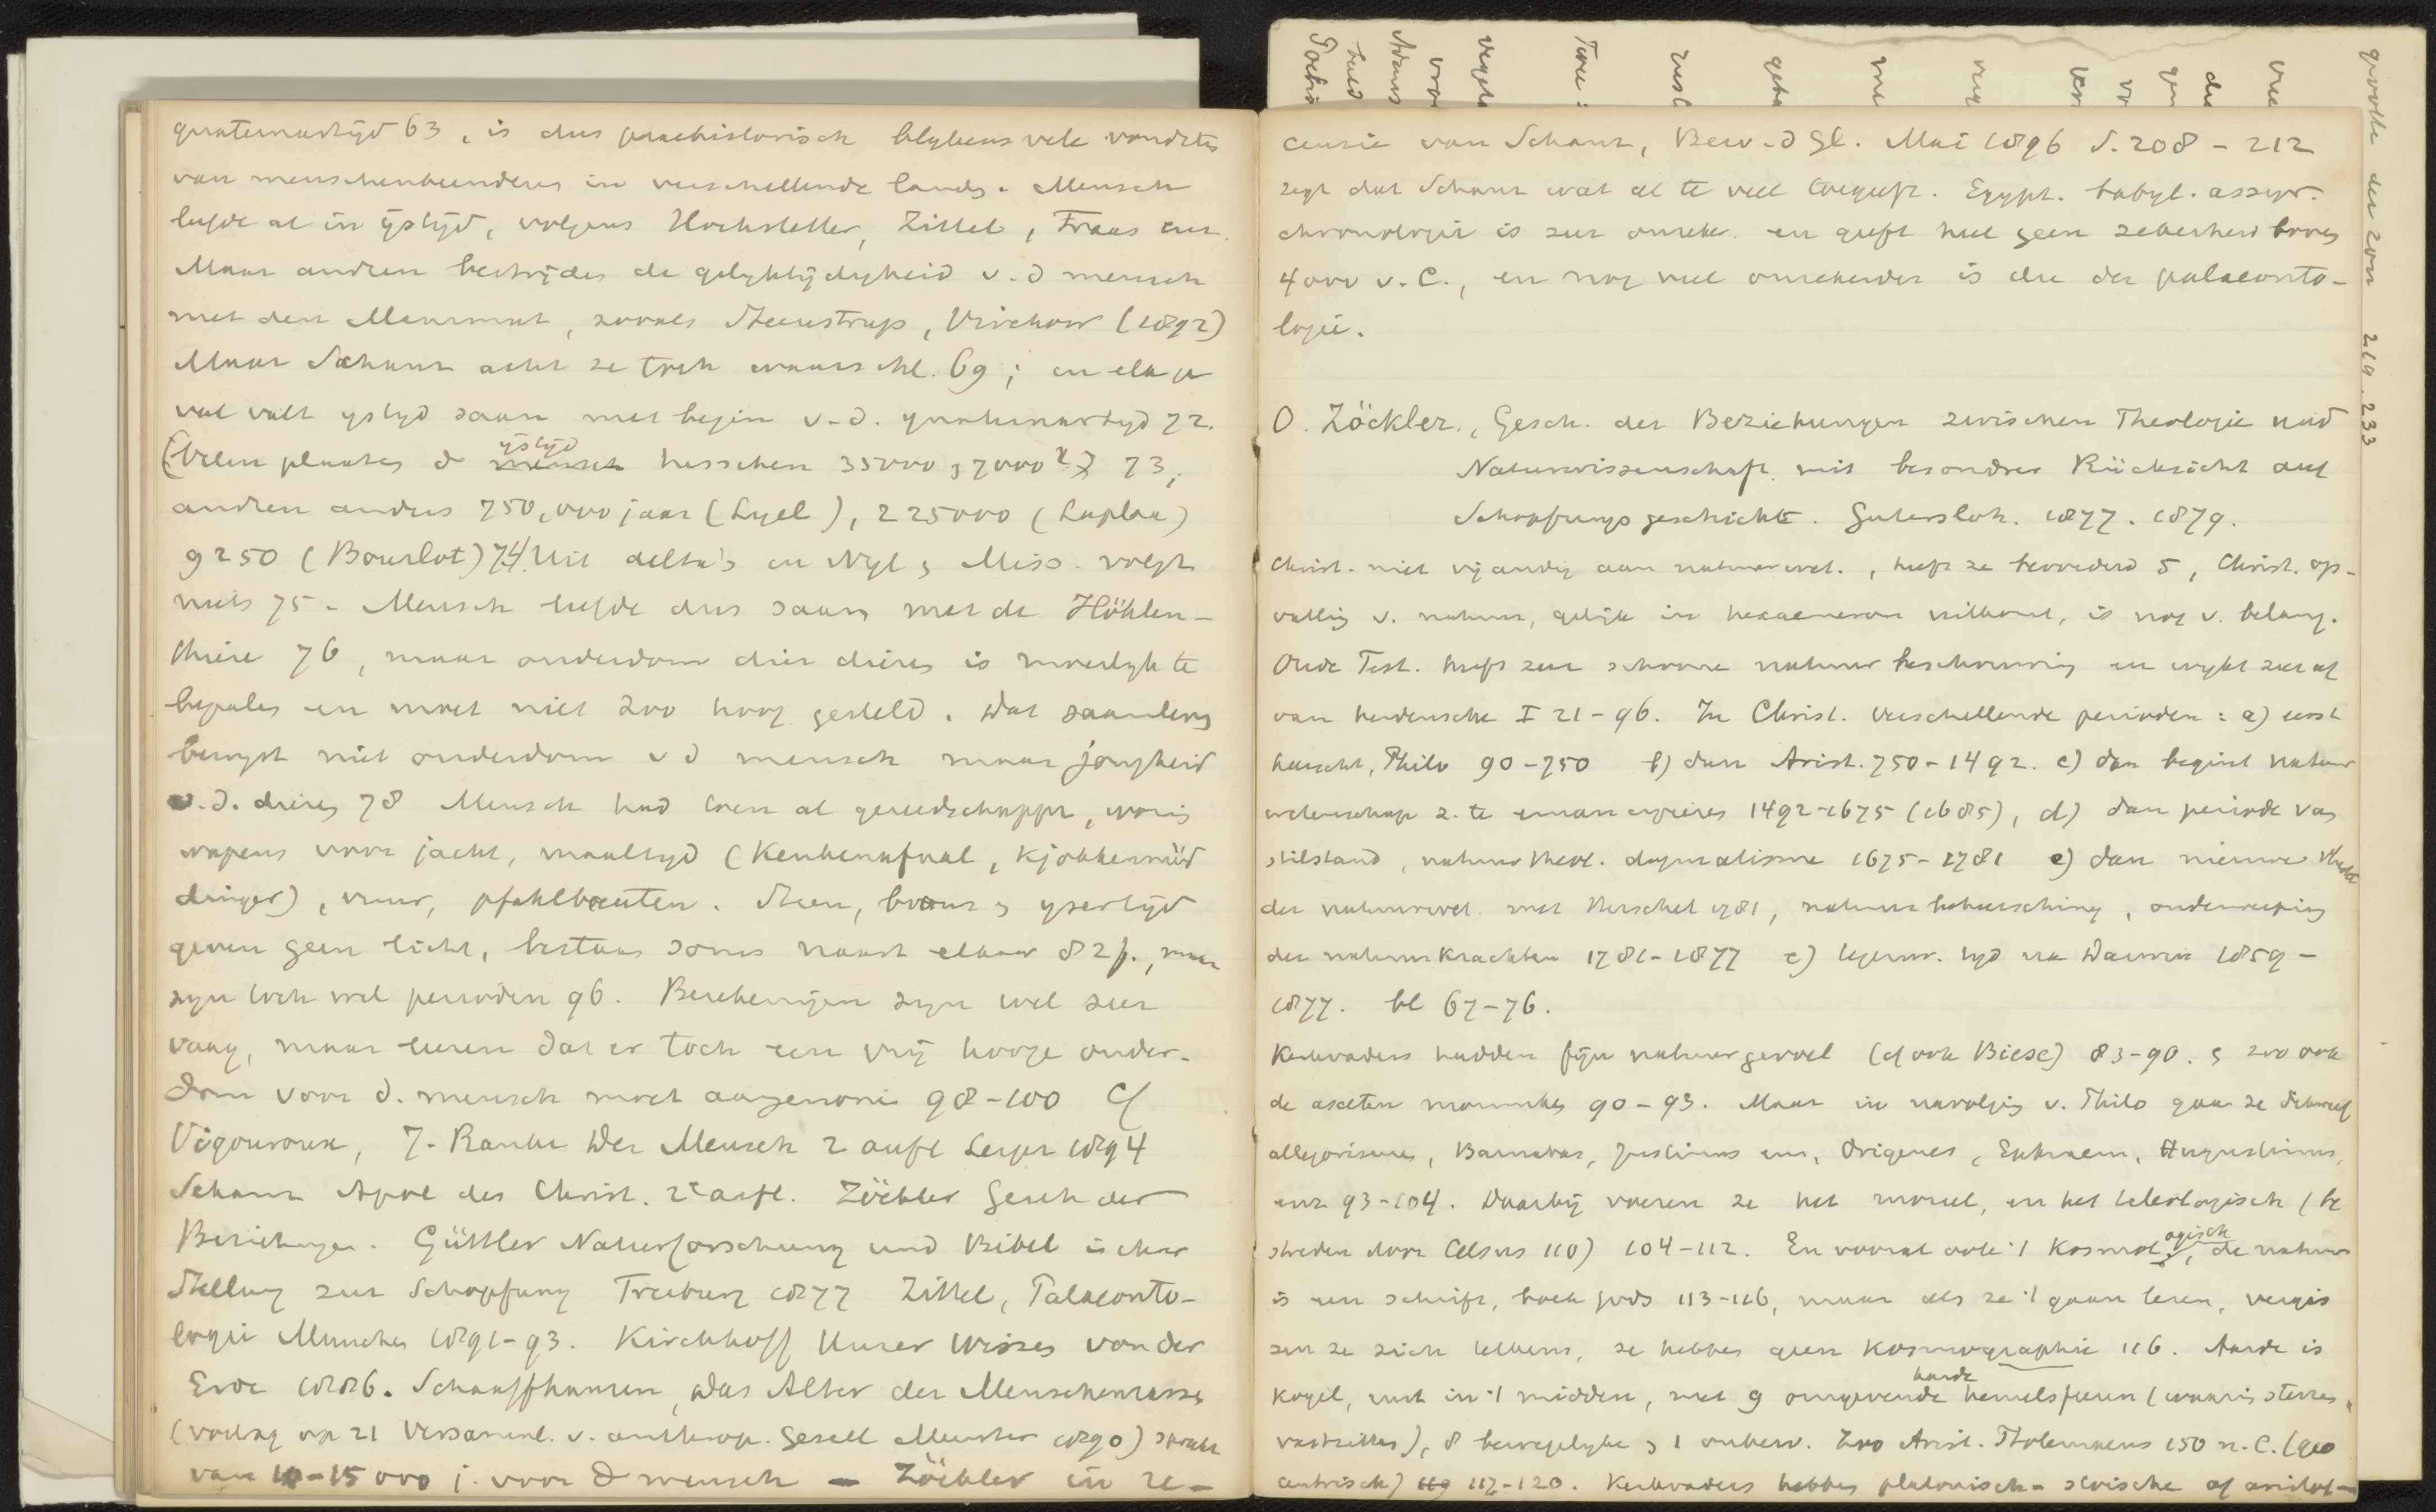 quaternairtijd 63, is dus praehistorisch blijkens vele vondsten
van menschenbeenderen in verschillende landen. Mensch
leefde al in ijstijd, volgens Hochstetter, Zittel, Fraas enz.
Maar andren bestrijden de gelijktijdigheid v.d mensch
met den Mammut, zooals Steenstrup, Virchow (1892)
Maar Schanz acht ze toch waarschl. 69; in elk ge
val valt ijstijd saam met begin v.d. quaternairtijd 72.
(velen plaatsen de ijstijd tusschen 35000 37000 73,
andren anders 750,000 jaar (Lyel), 225000 (Laplace)
9250 (Bourlot) 74. Uit delta's en Nijl Miss. volgt
niets 75. Mensch leefde dus saam met de Höhlen-
thiere 76, maar ouderdom dier dieren is moeilijk te
bepalen en moet niet zoo hoog gesteld. Dat saamleven
bewijst niet ouderdom v d mensch maar jongheid
v.d. dieren 78 Mensch had toen al gereedschappen,
wapens voor jacht, maaltijd (Keukenafval, Kjokkenmöd
dinger), vuur, pfahlbauten. Steen, brons ijzertijd
geven geen licht, bestaan soms naast elkaar 82 f., maar
zijn toch wel perioden 96. Berekeningen zijn wel zeer
vaag, maar leeren dat er toch een vrij hooge ouder-
dom voor d. mensch moet aangenomen 98-100 Cf
Vigouroux, J. Ranke Der Mensch 2 aufl Leipz 1894
Schanz Apol des Christ. 2e aufl. Zöckler Gesch der
Beziehungen. Güttler Naturforschung und Bibel in ihrer
Stellung zur Schöpfung Freiburg 1877 Zittel, Palaeonto-
logie Munchen 1891-93. Kirchhoff Unser Wissen von der
Erde 1886. Schaaffhausen, Das Alter der Menschenrasse
(vortrag op 21 Versamml. v. anthrop. Gesell Munster 1890) spreekt
van 10-15000 j. voor d mensch - Zöckler in re-
censie van Schanz, Bew. d Gl. Mai 1896 S. 208 - 212
zegt dat Schanz wat al te veel toegeeft. Egypt. babyl. assyr.
chronologie is zeer onzeker en geeft heel geen zekerheid boven
4000 v. C., en nog veel onzekerder is die der palaeonto-
logie.
O. Zöckler., Gesch. der Beziehungen zwischen Theologie und
Naturwissenschaft. mit besondrer Rücksicht auf
Schöpfungsgeschichte. Gutersloh. 1877. 1879.
Christ. niet vijandig aan natuurwet., heeft ze bevorderd 5, Christ. op-
vatting v. natuur, gelijk in hexaemeron uitkomt, is nog v. belang.
Oude Test. heeft zeer schoone natuurbeschrouwing en wijkt zeer af
van heidensche I 21-96. In Christ. verschillende perioden: a) eerst
heerscht, Philo 90-750 b) dan Arist. 750-1492. c) dan begint natuur
wetenschap z. te emancipieren 1492-1675 (1685), d) dan periode van
stilstand, natuurtheol. dogmatisme 1675-1781 e) dan nieuwe
der natuurwet. met Herschel 1781, natuurbeheersching, onderwerping
der natuurkrachten 1781-1877 e) tegenw. tijd na Darwin 1859 -
1877. bl 67-76.
Kerkvaders hadden fijn natuurgevoel (cf ook Biese) 83-90. zoo ook
de asceten monniken 90-93. Maar in navolging v. Philo gaan ze
allegoriseren, Barnabas, Justinus enz, Origenes, Ephraem, Augustinus,
enz 93-104. Daarbij voeren ze het moreel, en het teleologisch (be
streden door Celsus 110) 104-112. En vooral ook 't Kosmologisch, de natuur
is een schrift, boek gods 113-116, maar als ze 't gaan lezen, vergis
sen ze zich telkens, ze hebben geen Kosmographie 116. Aarde is
Kogel, rust in 't midden, met 9 omgevende harde hemelsferen (waarin sterren
vastzitten), 8 bewegelijke 1 onbew. Zoo Arist. Ptolemaeus 150 n. C. (geo
centrisch) 117-120. Kerkvaders hebben platonisch-stoische of aristot-
grootte der zon 219. 233